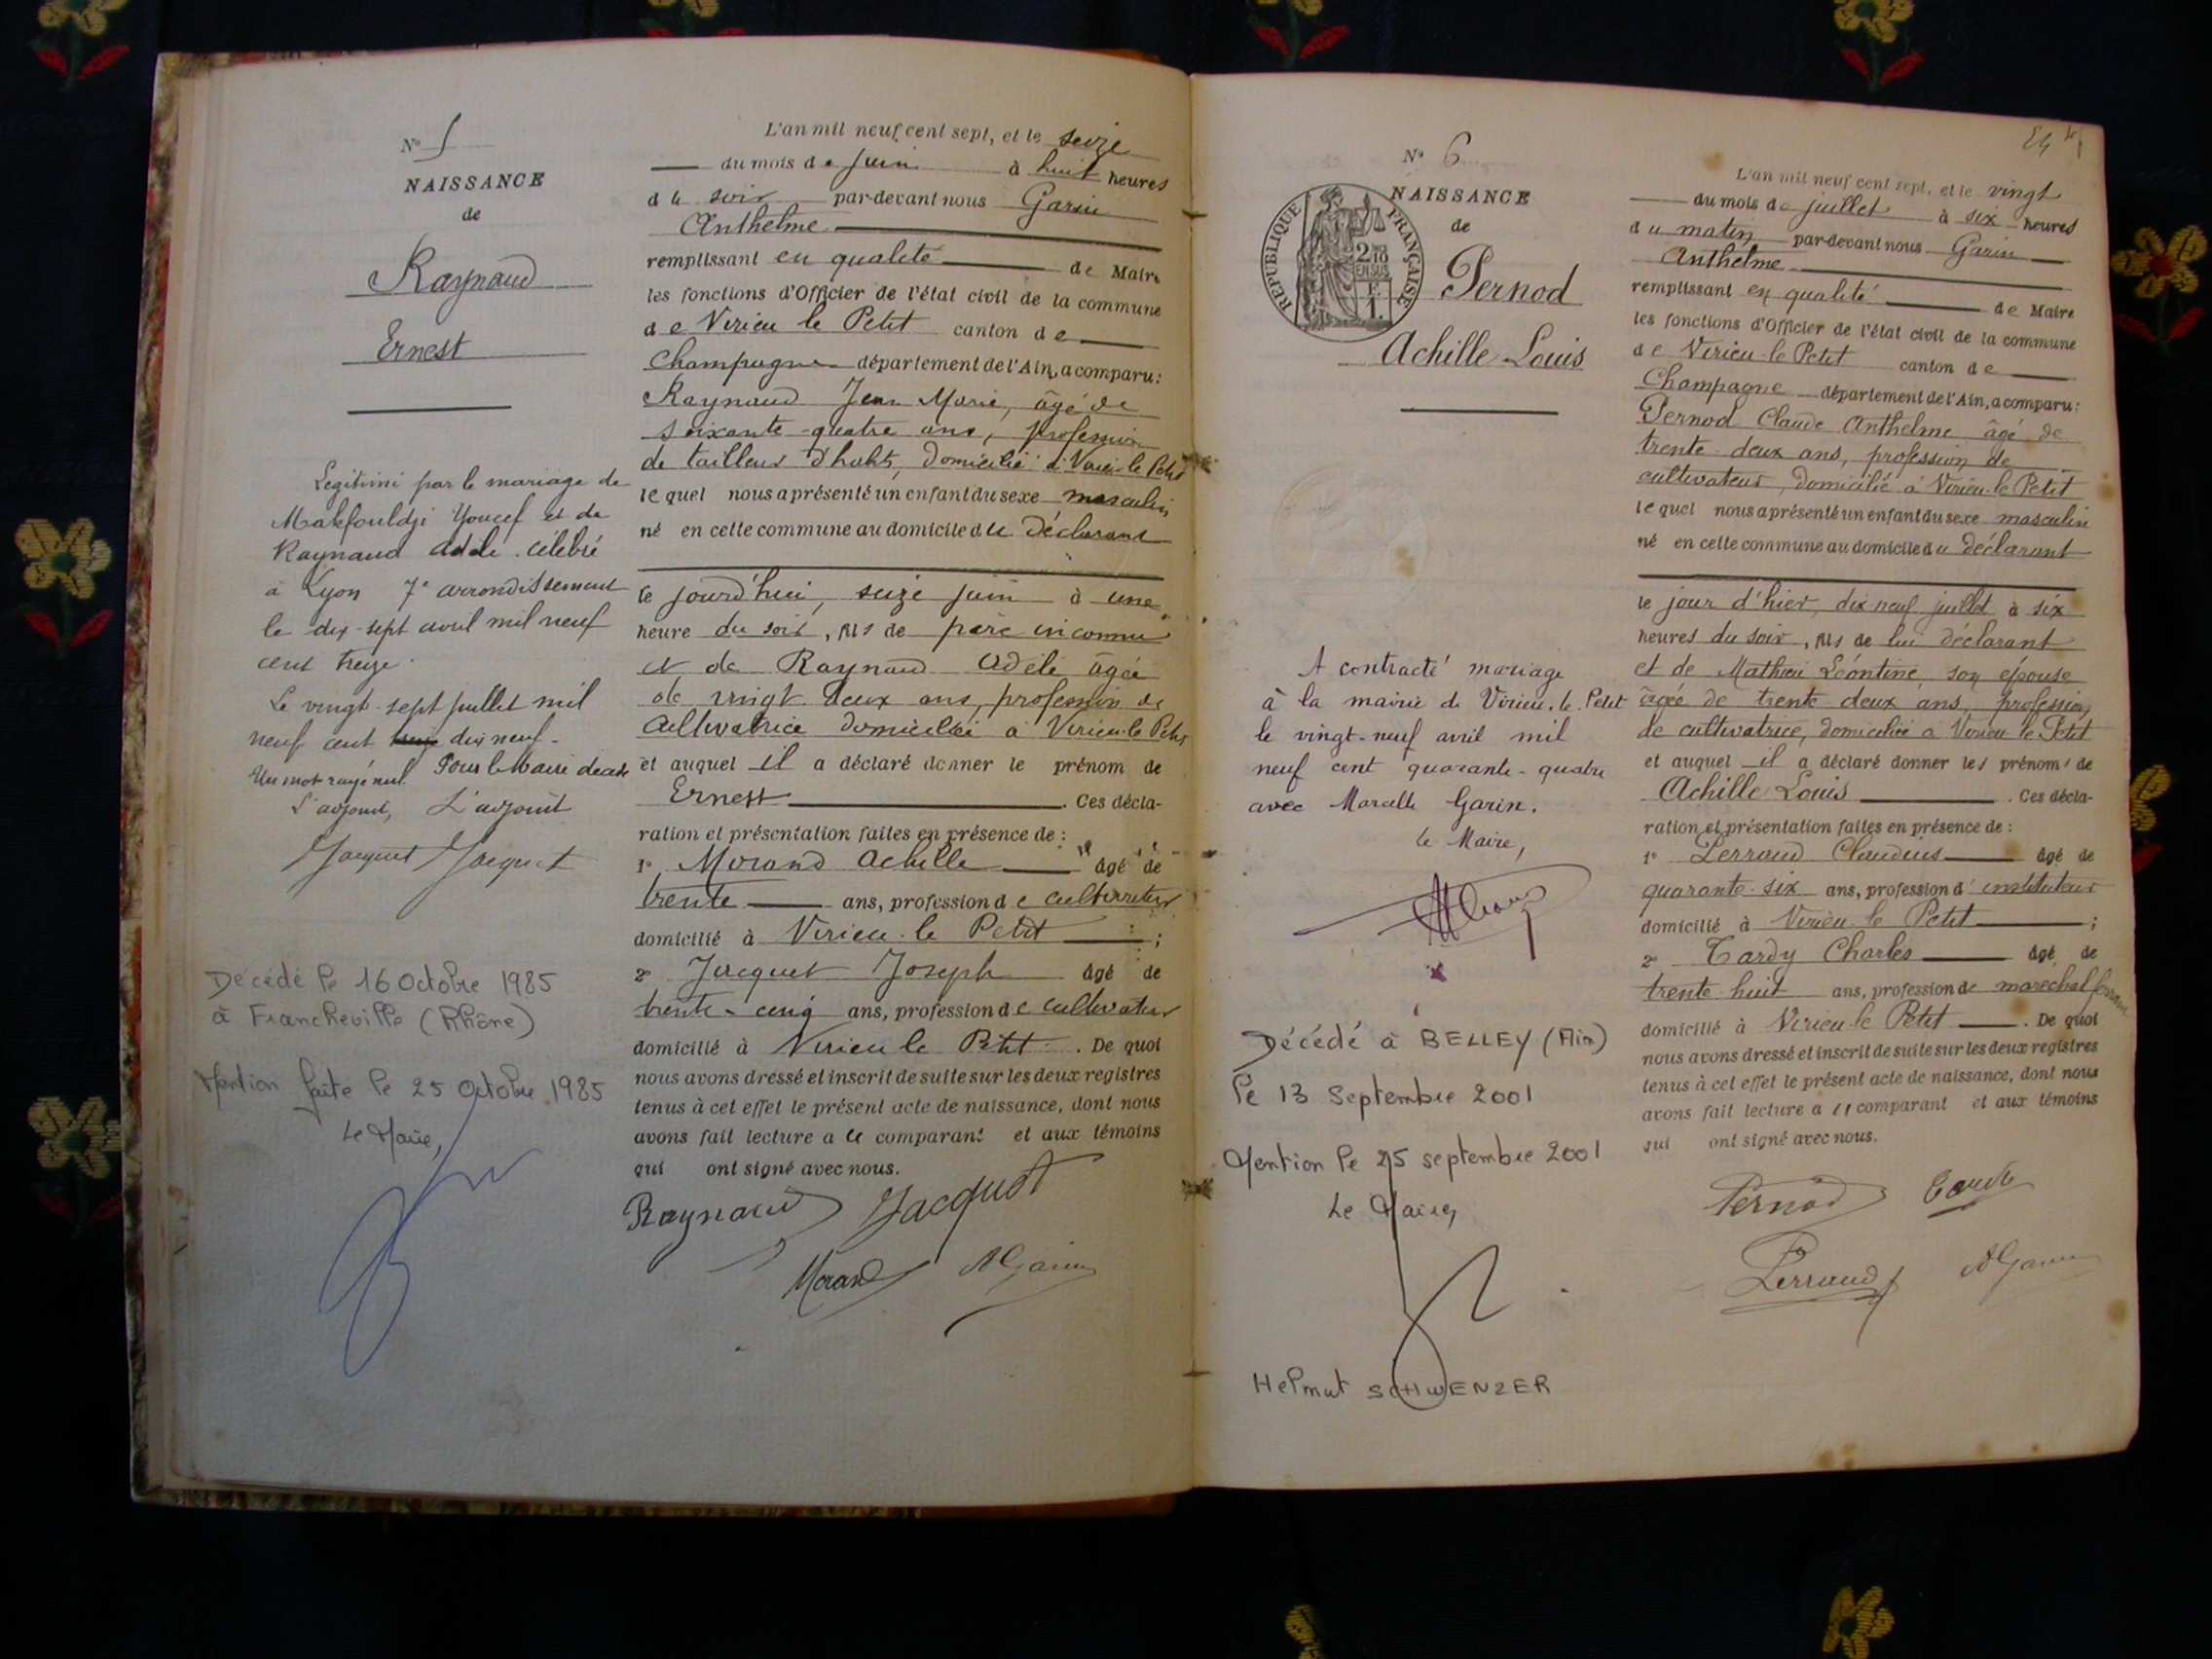 N° 5
NAISSANCE
de
Raynaud
Ernest
Legitimé par le mariage de
Makfouldji Youcef et de
Raynaud Adèle célébré
à Lyon 7e arrondissement
le dix-sept avril mil neuf
cent treize.
Le vingt-sept juillet mil
neuf cent dix neuf.
Un mot rayé nul. Pour le Maire décédé
L'adjoint, L'adjoint
Jacquet Jacquet
Décédé le 16 Octobre 1985
à Francheville (Rhône)
Mention faite le 25 Octobre 1985
Le Maire,
L'an mil neuf cent sept, et le seize
du mois de juin à huit heures
du soir par-devant nous Garin
Anthelme
remplissant en qualité de Maire
les fonctions d'Officier de l'état civil de la commune
de Virieu le Petit canton de
Champagne département de l'Ain, a comparu :
Raynaud Jean Marie, âgé de
soixante-quatre ans, profession
de tailleur d'habits, domicilié à Virieu-le Petit
lequel nous a présenté un enfant du sexe masculin
né en cette commune au domicile du déclarant
le jourd'hui, seize juin à une
heure du soir, fils de père inconnu
et de Raynaud Adèle âgée
de vingt deux ans, profession de
cultivatrice domiciliée à Virieu-le Petit
et auquel il a déclaré donner le prénom de
Ernest . Ces décla-
ration et présentation faites en présence de :
1° Morand Achille âgé de
trente ans, profession de cultivateur
domicilié à Virieu-le Petit ;
2° Jacquet Joseph âgé de
trente-cinq ans, profession de cultivateur
domicilié à Virieu le Petit . De quoi
nous avons dressé et inscrit de suite sur les deux registres
tenus à cet effet le présent acte de naissance, dont nous
avons fait lecture au comparant et aux témoins
qui ont signé avec nous.
Raynaud Jacquet
Morand AGarin
N° 6
NAISSANCE
de
REPUBLIQUE FRANÇAISE
2/10 EN SUS
Pernod
Achille Louis
A contracté mariage
à la mairie de Virieu-le-Petit
le vingt-neuf avril mil
neuf cent quarante-quatre
avec Marcelle Garin.
le Maire,
Décédé à BELLEY (Ain)
le 13 Septembre 2001
Mention le 25 septembre 2001
Le Maire,
Helmut SCHWENZER
L'an mil neuf cent sept, et le vingt
du mois de juillet à six heures
du matin par-devant nous Garin
Anthelme
remplissant en qualité de Maire
les fonctions d'Officier de l'état civil de la commune
de Virieu-le Petit canton de
Champagne département de l'Ain, a comparu :
Pernod Claude Anthelme âgé de
trente deux ans, profession de
cultivateur, domicilié à Virieu-le Petit
lequel nous a présenté un enfant du sexe masculin
né en cette commune au domicile du déclarant
le jour d'hier, dix neuf juillet à six
heures du soir, fils de lui déclarant
et de Mathieu Léontine, son épouse
âgée de trente deux ans, profession
de cultivatrice, domiciliée à Virieu-le Petit
et auquel il a déclaré donner les prénoms de
Achille Louis . Ces décla-
ration et présentation faites en présence de :
1° Perraud Claudius âgé de
quarante-six ans, profession d'instituteur
domicilié à Virieu-le Petit ;
2° Tardy Charles âgé de
trente huit ans, profession de maréchal ferrant
domicilié à Virieu-le Petit . De quoi
nous avons dressé et inscrit de suite sur les deux registres
tenus à cet effet le présent acte de naissance, dont nous
avons fait lecture au comparant et aux témoins
qui ont signé avec nous.
Pernod Tardy
Perraud AGarin